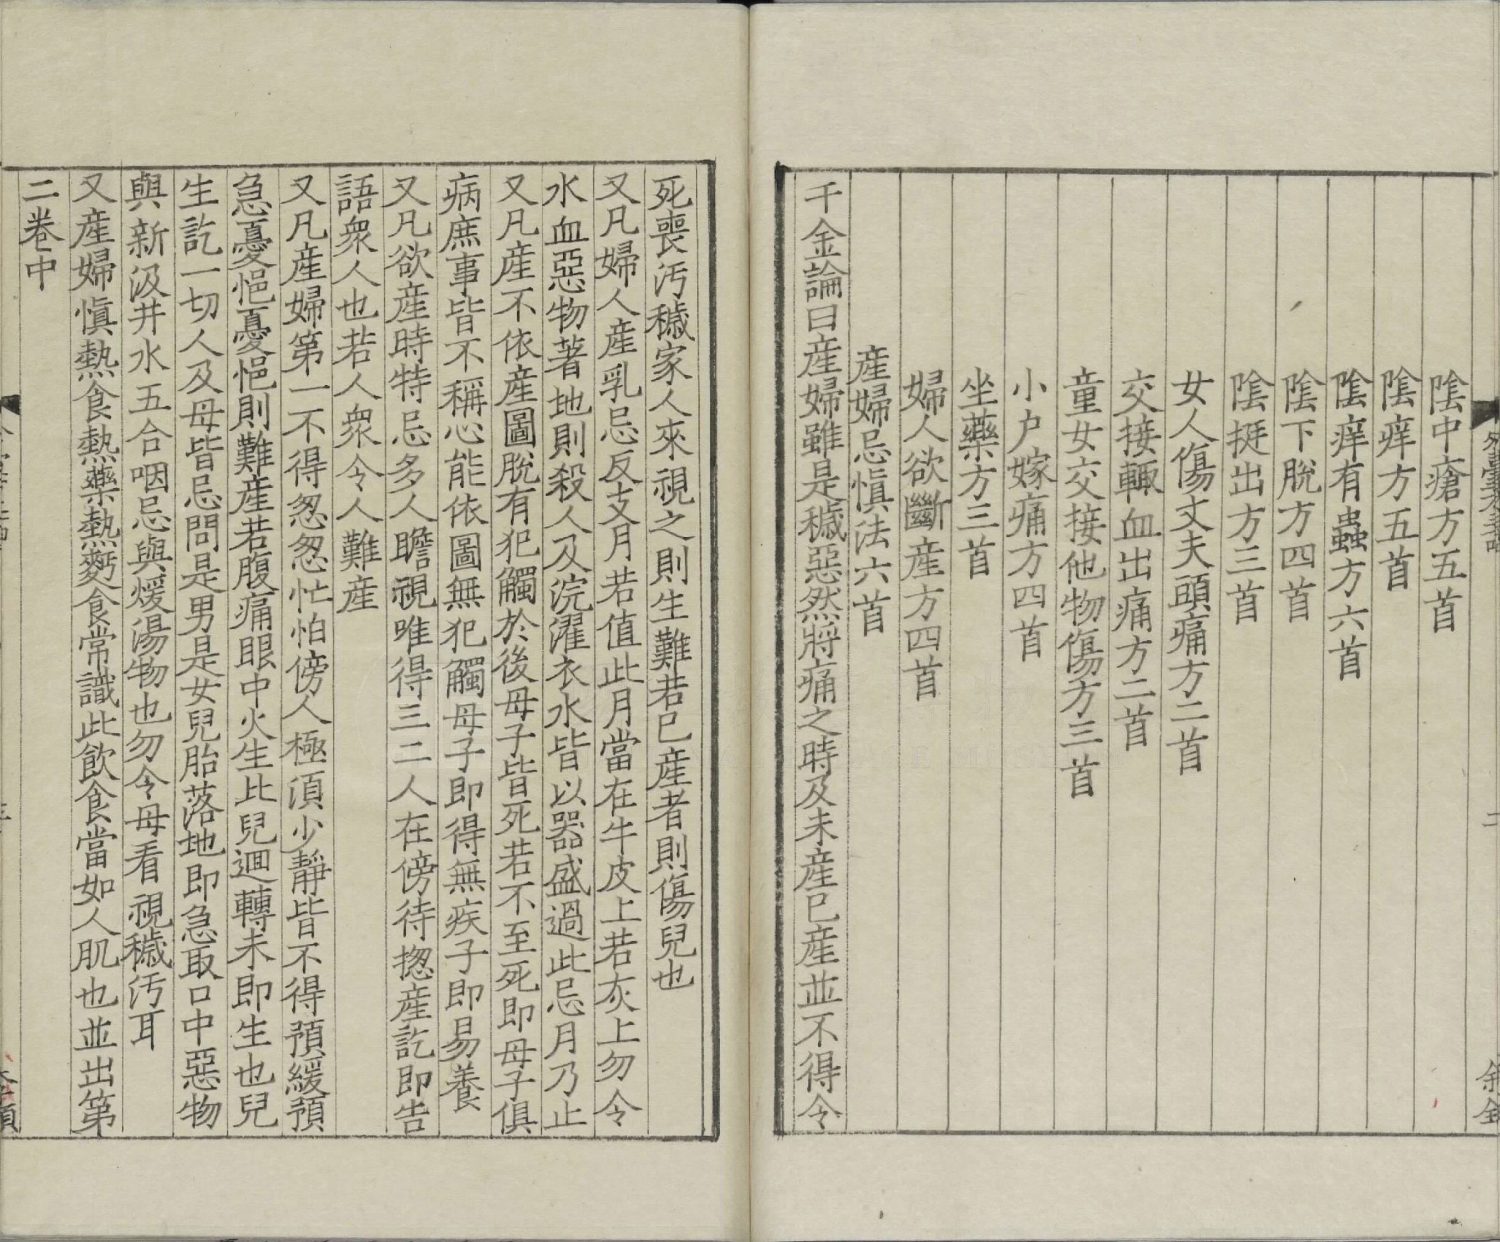 陰中瘡方五首
陰痒方五首
陰痒有蟲方六首
陰下脫方四首
陰挺出方三首
女人傷丈夫頭痛方二首
交接輙血出痛方二首
童女交接他物傷方三首
小户嫁痛方四首
坐藥方三首
婦人欲斷産方四首
産婦忌慎法六首
千金論曰産婦雖是穢惡然將痛之時及未産已産並不得令
死喪汚穢家人來視之則生難若已産者則傷兒也
又凡婦人産乳忌反支月若值此月當在牛皮上若灰上勿令
水血惡物著地則殺人及浣濯衣水皆以器盛過此忌月乃止
又凡産不依産圖脫有犯觸於後母子皆死若不至死即母子俱
病庶事皆不稱心能依圖無犯觸母子即得無疾子即易養
又凡欲産時特忌多人瞻視唯得三二人在傍待揔産訖即告
語衆人也若人衆令人難産
又凡産婦第一不得怱怱忙怕傍人極湏少静皆不得預緩預
急憂悒憂悒則難産若腹痛眼中火生此兒迴轉未即生也兒
生訖一切人及母皆忌問是男是女兒胎落地即急取口中惡物
與新汲井水五合咽忌與煖湯物也勿令母看視穢汚耳
又産婦慎熱食熱藥熱麪食常識此飲食當如人肌也並出第
二卷中